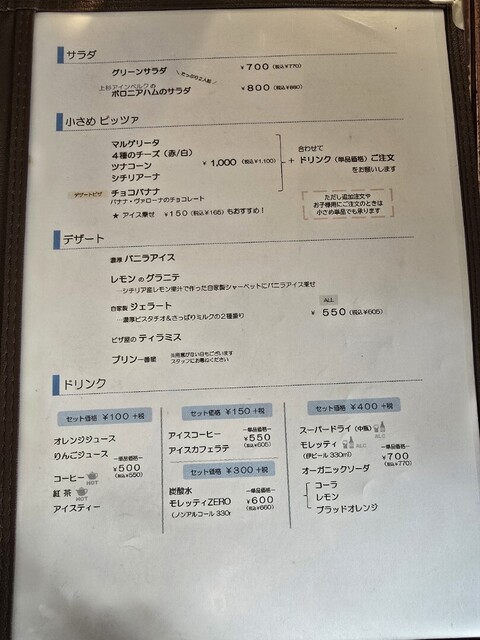 サラダ
グリーンサラダ たっぷり2人前 ¥700 (税込¥770)
上杉アインベルクの
ボロニアハムのサラダ ¥800 (税込¥880)
小さめ ピッツァ
マルゲリータ
4種のチーズ (赤/白)
ツナコーン
シチリアーナ
¥1,000 (税込¥1,100)
合わせて
+ ドリンク (単品価格) ご注文
をお願いします
デザートピザ チョコバナナ
バナナ・ヴァローナのチョコレート
★ アイス乗せ ¥150 (税込¥165) もおすすめ!
ただし追加注文や
お子様用にご注文のときは
小さめ単品でも承ります
デザート
濃厚 バニラアイス
レモン の グラニテ
…シチリア産レモン果汁で作った自家製シャーベットにバニラアイス乗せ
自家製 ジェラート
…濃厚ピスタチオ&さっぱりミルクの2種盛り
ALL
¥ 550 (税込¥605)
ピザ屋の ティラミス
プリン一番館 ※用意がない日もございます
スタッフにお尋ねください
ドリンク
セット価格 ¥100 +税
オレンジジュース
りんごジュース
コーヒー HOT
紅茶 HOT
アイスティー
―単品価格―
¥500
(税込¥550)
セット価格 ¥150 +税
アイスコーヒー
アイスカフェラテ
―単品価格―
¥550
(税込¥605)
セット価格 ¥300 +税
炭酸水
モレッティZERO
(ノンアルコール 330r
―単品価格―
¥600
(税込¥660)
セット価格 ¥400 +税
スーパードライ (中瓶) ALC
モレッティ ALC
(伊ビール 330ml)
オーガニックソーダ
コーラ
レモン
ブラッドオレンジ
―単品価格―
¥700
(税込¥770)